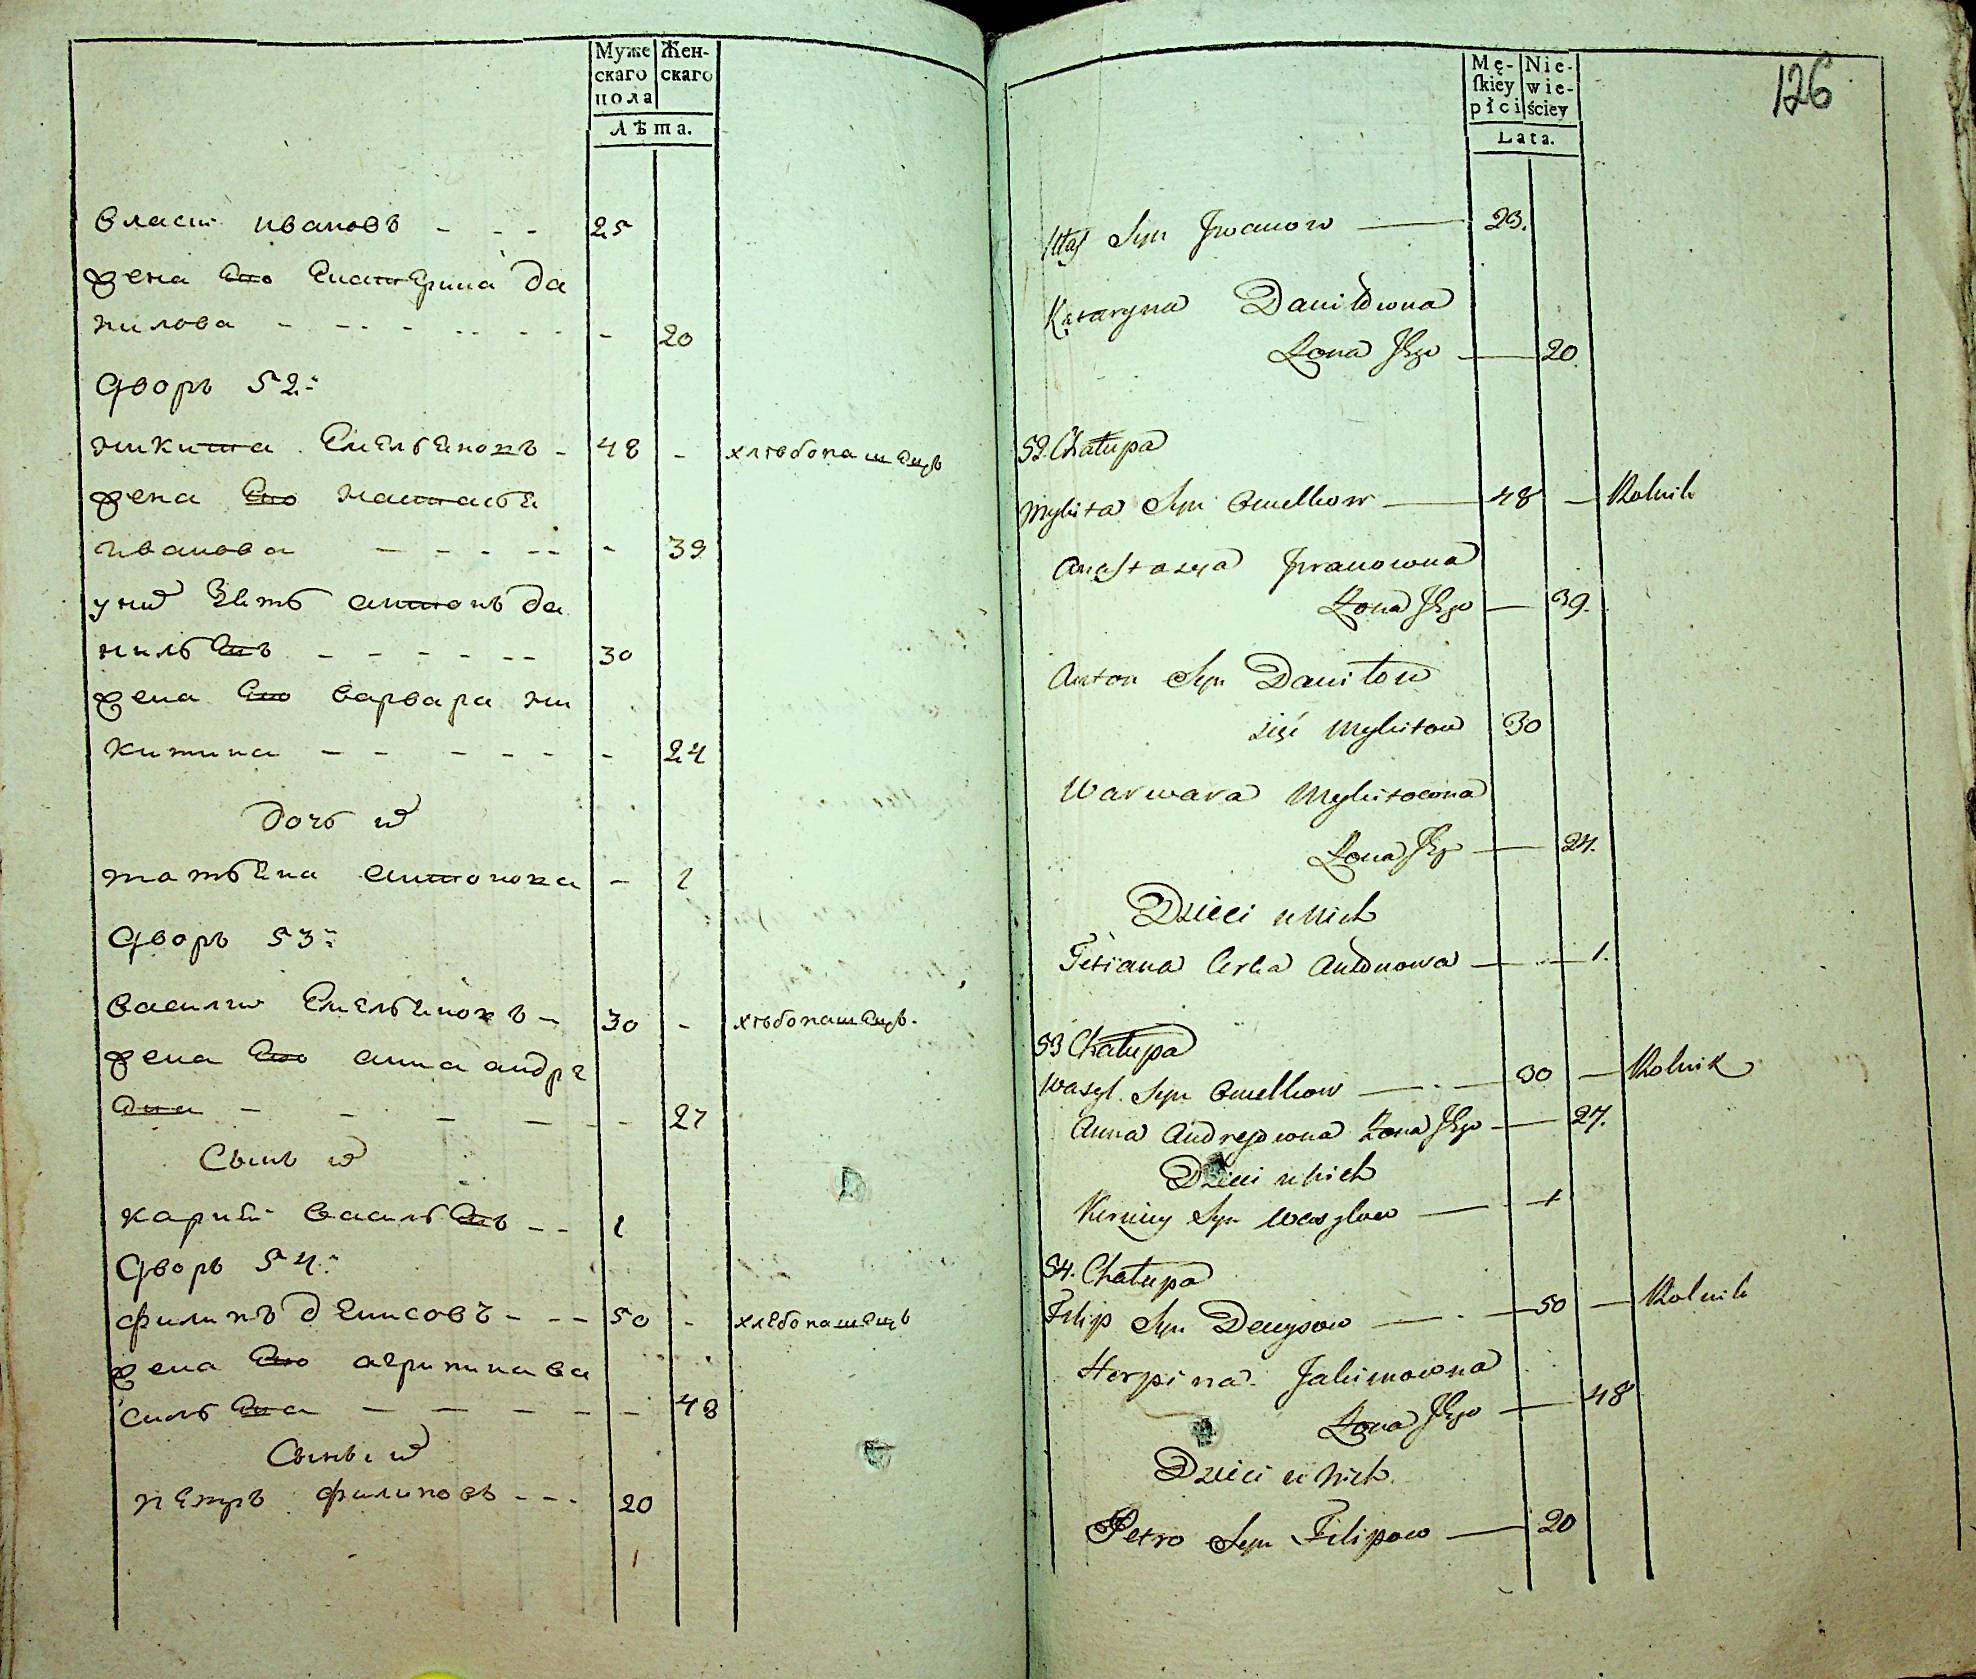 Муже Жен-
скаго скаго
пола
Лѣта.
власи ивановъ - - - 25
жена его екатерина да
нилова - - - - - - 20
дворъ 52:
никита емельяновъ - 48 - хлѣбопашецъ
жена его настасья
иванова - - - - - - 39
у них зять антонъ да
нильевъ - - - - - - 30
жена его варвара ни
китина - - - - - - 24
дочь их
татьяна антонова - 1
дворъ 53:
василий емельяновъ - 30 - хлѣбопашецъ.
жена его анна андре
ева - - - - - - 27
Сынъ их
васильевъ - - 1
дворъ 54:
филипъ денисовъ - - - 50 - хлебопашецъ
жена его агрипина ва
сильева - - - - - - 48
Сыны их
петръ филиповъ - - - 20
126
Mę- Nie-
ſkiey wie-
płci ściey
Lata.
Syn Jwanow — 23.
Kataryna Daniłowna
Żona Jego — 20.
52. Chałupa
Mykita Syn Omelkow — 48 — Rolnik
Anastazya Jwanowna
Żona Jego — 39.
Anton Syn Daniłow
zięć Mykitow 30
Warwara Mykitowna
Żona Jego — 24.
Dzieci u Nich
Tetiana Corka Antonowa — 1.
53 Chałupa
Wasyl Syn Omelkow — 30 — Rolnik
Anna Andrejowna Żona Jego — 27.
Dzieci u Nich
Syn Wasylow — 1
54. Chałupa
Filip Syn Denysow — 50 — Rolnik
Horpina Jakimowna
Żona Jego — 48
Dzieci u Nich.
Petro Syn Filipow — 20